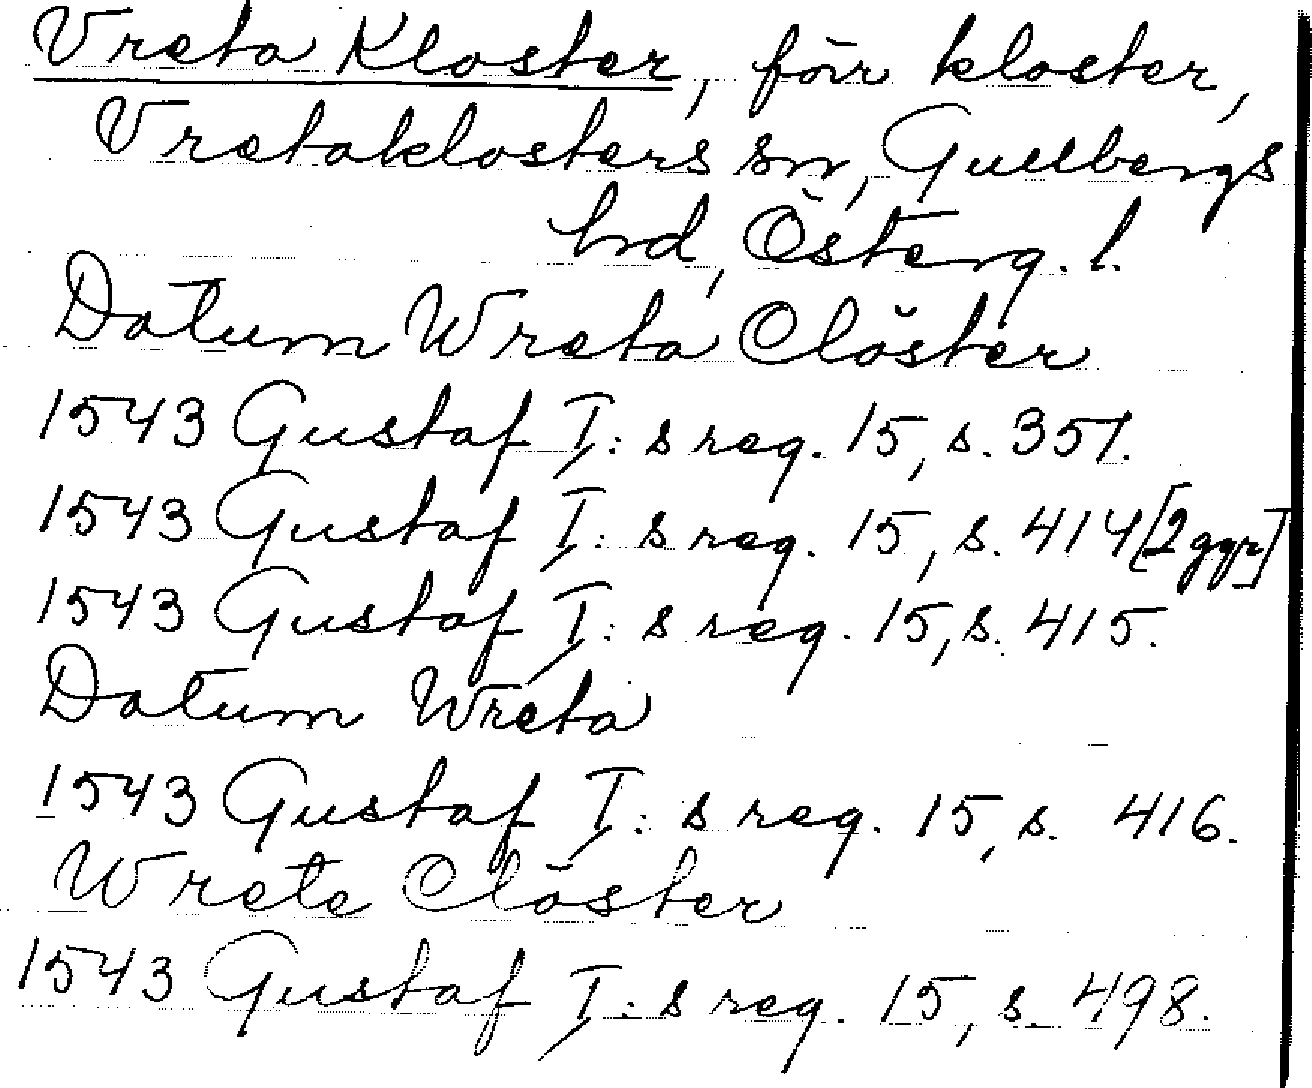 Vreta Kloster, förr kloster,
Vretaklosters sn, Gullbergs
hrd, Österg. l.
Datum Wreta Clöster
1543 Gustaf I: s reg. 15, s. 351.
1543 Gustaf I: s reg. 15, s. 414 [2 ggr]
1543 Gustaf I: s reg. 15, s. 415.
Datum Wreta
1543 Gustaf I: s reg. 15, s. 416.
Wrete Clöster
1543 Gustaf I: s reg. 15, s. 498.